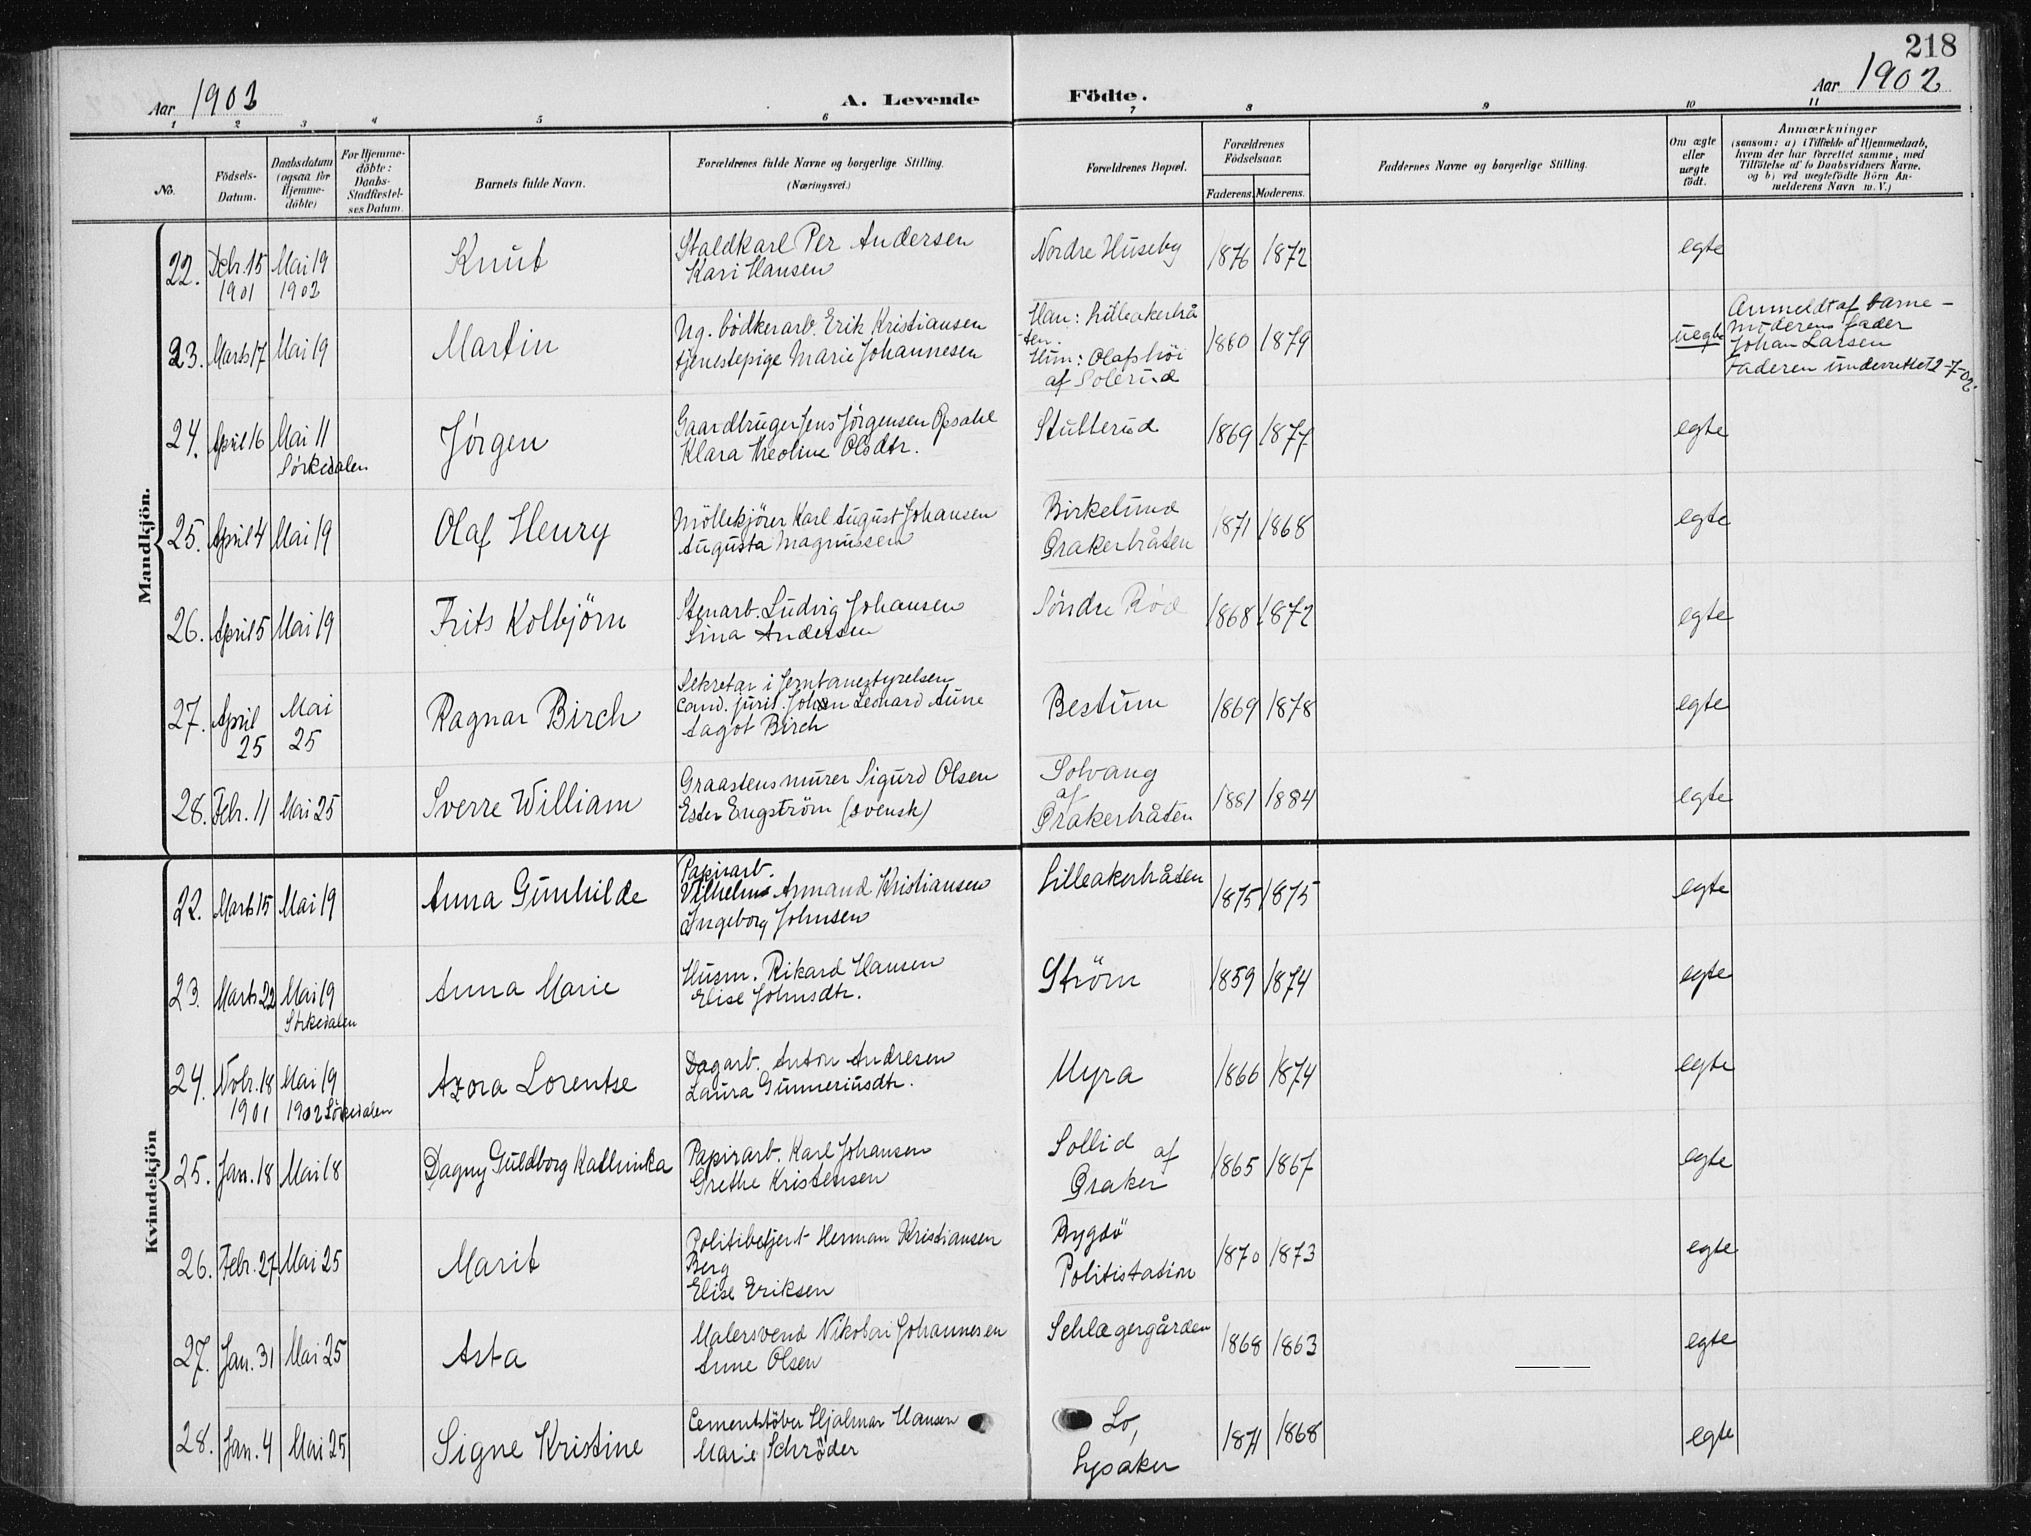 218
Aar 1902
A. Levende Födte.
Aar 1902
1 2 3 4 5 6 7 8 9 10 11
No.
Födsels-
Datum.
Daabsdatum
(ogsaa for
Hjemme-
döbte)
For Hjemme-
döbte:
Daabs-
Stadfæstel-
ses Datum.
Barnets fulde Navn.
Forældrenes fulde Navne og borgerlige Stilling.
(Næringsvei.)
Forældrenes Bopæl.
Forældrenes
Födselsaar.
Faderens. Moderens.
Faddernes Navne og borgerlige Stilling.
Om ægte
eller
uægte
födt.
Anmærkninger
(saasom: a) i Tilfælde af Hjemmedaab,
hvem der har forrettet samme, med
Tilföielse af to Daabsvidners Navne,
og b) ved uegtefödte Börn An-
melderens Navn m. V.)
Mandkjön.
22. Debr. 15 1901 Mai 19 1902 Knut
Staldkarl Per Andersen
Kari Hansen
Nordre Huseby 1876 1872 egte
23. Marts 17 Mai 19 Martin
Ug. bödkerarb. Erik Kristiansen
tjenestepige Marie Johannesen
Han: Lilleakerbrå
ten.
Hun: Olafshöi
af Solerud
1880 1879 uegte
Anmeldt af barne-
moderens fader
Johan Larsen
Faderen underrettet 2-7-02.
24. April 16 Mai 11 Sørkedalen Jørgen
Gaardbruger Jens Jørgensen Opsahl
Klara Theoline Olsdtr.
Stubberud 1869 1877 egte
25. April 4 Mai 19 Olaf Henry
Möllekjörer Karl August Johansen
Augusta Magnussen
Birkelund
Grakerbråten
1871 1868 egte
26. April 5 Mai 19 Frits Kolbjörn
Stenarb. Ludvig Johansen
Lina Andersen
Söndre Röd 1868 1872 egte
27. April 25 Mai 25 Ragnar Birch
Sekretær i Jernbanestyrelsen
cand. juris. Johan Leonard Aune
Aagot Birch
Bestum 1869 1878 egte
28. Febr. 11 Mai 25 Sverre William
Graastensmurer Sigurd Olsen
Ester Engström (svensk)
Solvang
af
Grakerbråten
1881 1884 egte
Kvindekjön
22. Marts 15 Mai 19 Anna Gunhilde
Papirarb.
Vilhelm Armand Kristiansen
Ingeborg Johnsen
Lilleakerbråten 1875 1875 egte
23. Marts 22 Mai 19 Sörkedalen Anna Marie
Husm. Rikard Hansen
Elise Johnsdtr.
Ström 1859 1874 egte
24. Novbr. 18 1901 Mai 19 1902 Sörkedalen Azora Lorentse
Dagarb. Anton Andresen
Laura Gunneriusdtr.
Myra 1866 1874 egte
25. Jan. 18 Mai 18 Dagny Guldborg Kathinka
Papirarb. Karl Johansen
Grethe Kristensen
Sollid af
Graker
1865 1867 egte
26. Febr. 27 Mai 25 Marit
Politibetjent Herman Kristiansen
Berg
Elise Eriksen
Bygdö
Politistation
1870 1873 egte
27. Jan. 31 Mai 25 Asta
Malersvend Nikolai Johannesen
Anne Olsen
Schlagergården 1868 1863 egte
28. Jan. 4 Mai 25 Signe Kristine
Cementstöber Hjalmar Hansen
Marie Schröder
Lo,
Lysaker
1871 1868 egte